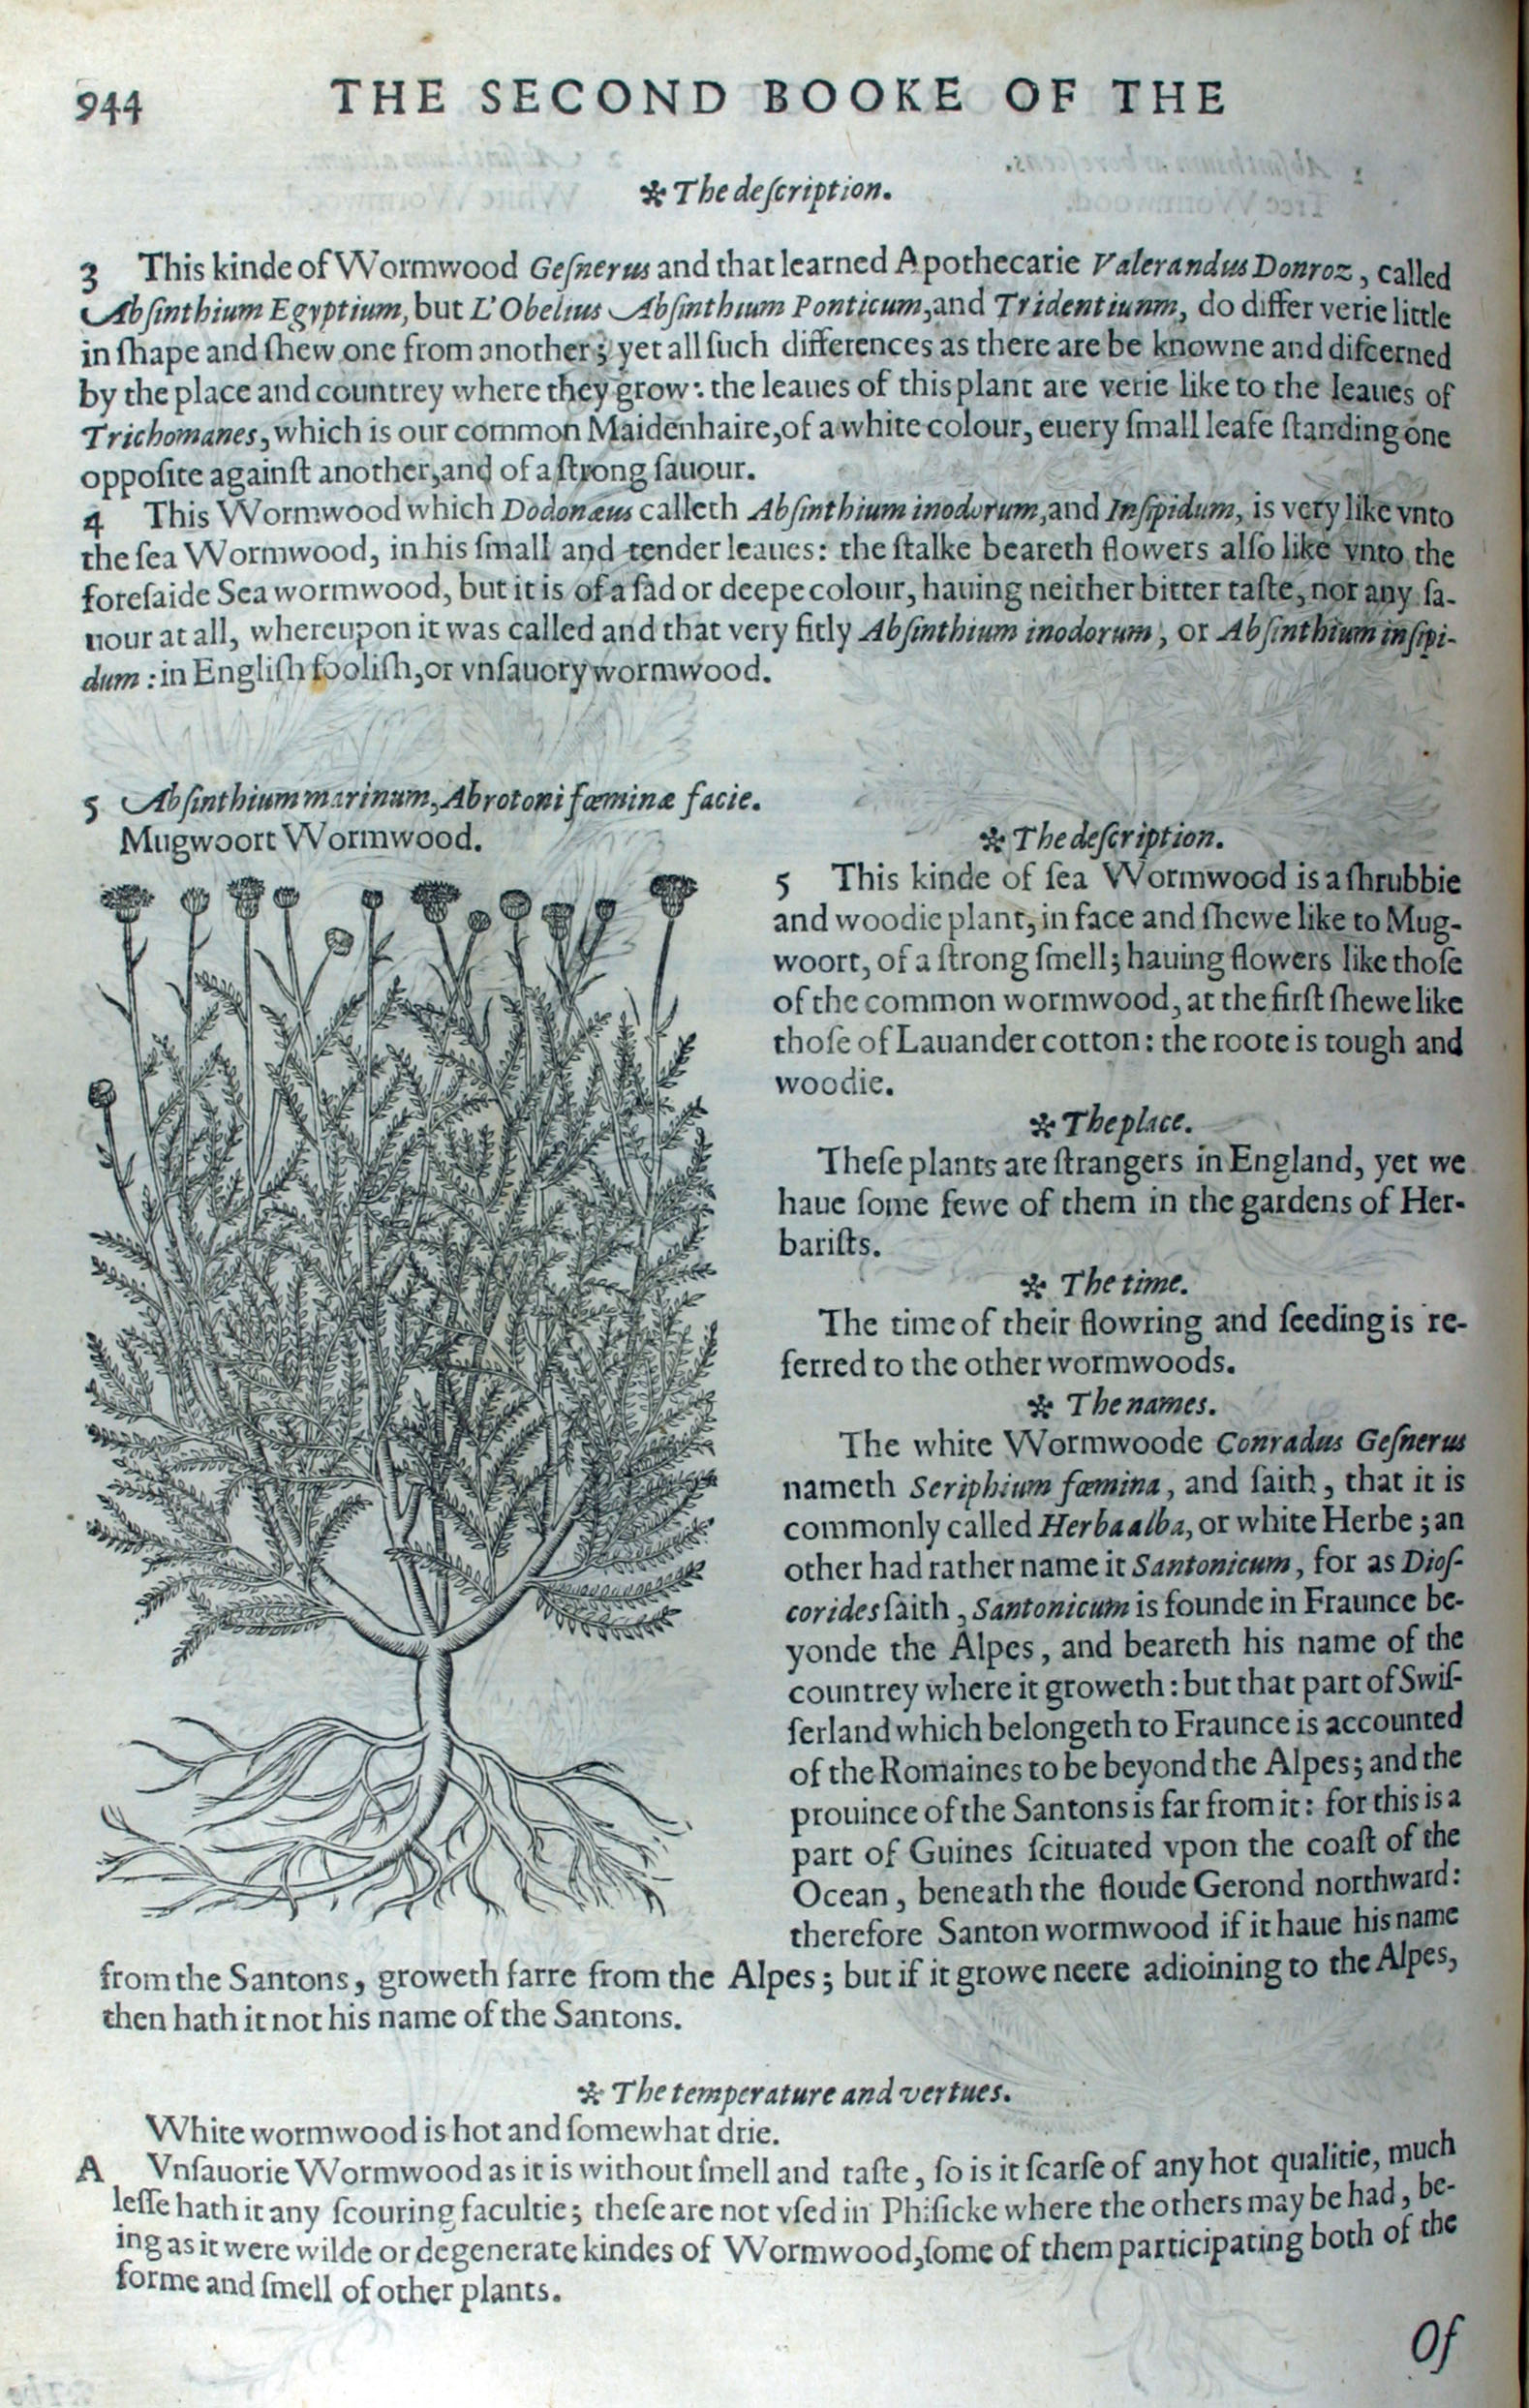 944 THE SECOND BOOKE OF THE
✻ The deſcription.
3 This kinde of Wormwood Geſnerus and that learned Apothecarie Valerandus Donroz, called
Abſinthium Egyptium, but L'Obelius Abſinthium Ponticum, and Tridentiunm, do differ verie little
in ſhape and ſhew one from another; yet all ſuch differences as there are be knowne and diſcerned
by the place and countrey where they grow: the leaues of this plant are verie like to the leaues of
Trichomanes, which is our common Maidenhaire, of a white colour, euery ſmall leafe ſtanding one
oppoſite againſt another, and of a ſtrong ſauour.
4 This Wormwood which Dodonæus calleth Abſinthium inodorum, and Inſipidum, is very like vnto
the ſea Wormwood, in his ſmall and tender leaues: the ſtalke beareth flowers alſo like vnto the
foreſaide Sea wormwood, but it is of a ſad or deepe colour, hauing neither bitter taſte, nor any ſa-
uour at all, whereupon it was called and that very fitly Abſinthium inodorum, or Abſinthium inſipi-
dum: in Engliſh fooliſh, or vnſauory wormwood.
5 Abſinthium marinum, Abrotoni fœminæ facie.
Mugwoort Wormwood.
✻ The deſcription.
5 This kinde of ſea Wormwood is a ſhrubbie
and woodie plant, in face and ſhewe like to Mug-
woort, of a ſtrong ſmell; hauing flowers like thoſe
of the common wormwood, at the firſt ſhewe like
thoſe of Lauander cotton: the roote is tough and
woodie.
✻ The place.
Theſe plants are ſtrangers in England, yet we
haue ſome fewe of them in the gardens of Her-
bariſts.
✻ The time.
The time of their flowring and ſeeding is re-
ferred to the other wormwoods.
✻ The names.
The white Wormwoode Conradus Geſnerus
nameth Seriphium fœmina, and ſaith, that it is
commonly called Herba alba, or white Herbe; an
other had rather name it Santonicum, for as Dioſ-
corides ſaith, Santonicum is founde in Fraunce be-
yonde the Alpes, and beareth his name of the
countrey where it groweth: but that part of Swiſ-
ſerland which belongeth to Fraunce is accounted
of the Romaines to be beyond the Alpes; and the
prouince of the Santons is far from it: for this is a
part of Guines ſcituated vpon the coaſt of the
Ocean, beneath the floude Gerond northward:
therefore Santon wormwood if it haue his name
from the Santons, groweth farre from the Alpes; but if it growe neere adioining to the Alpes,
then hath it not his name of the Santons.
✻ The temperature and vertues.
White wormwood is hot and ſomewhat drie.
A Vnſauorie Wormwood as it is without ſmell and taſte, ſo is it ſcarſe of any hot qualitie, much
leſſe hath it any ſcouring facultie; theſe are not vſed in Phiſicke where the others may be had, be-
ing as it were wilde or degenerate kindes of Wormwood, ſome of them participating both of the
forme and ſmell of other plants.
Of